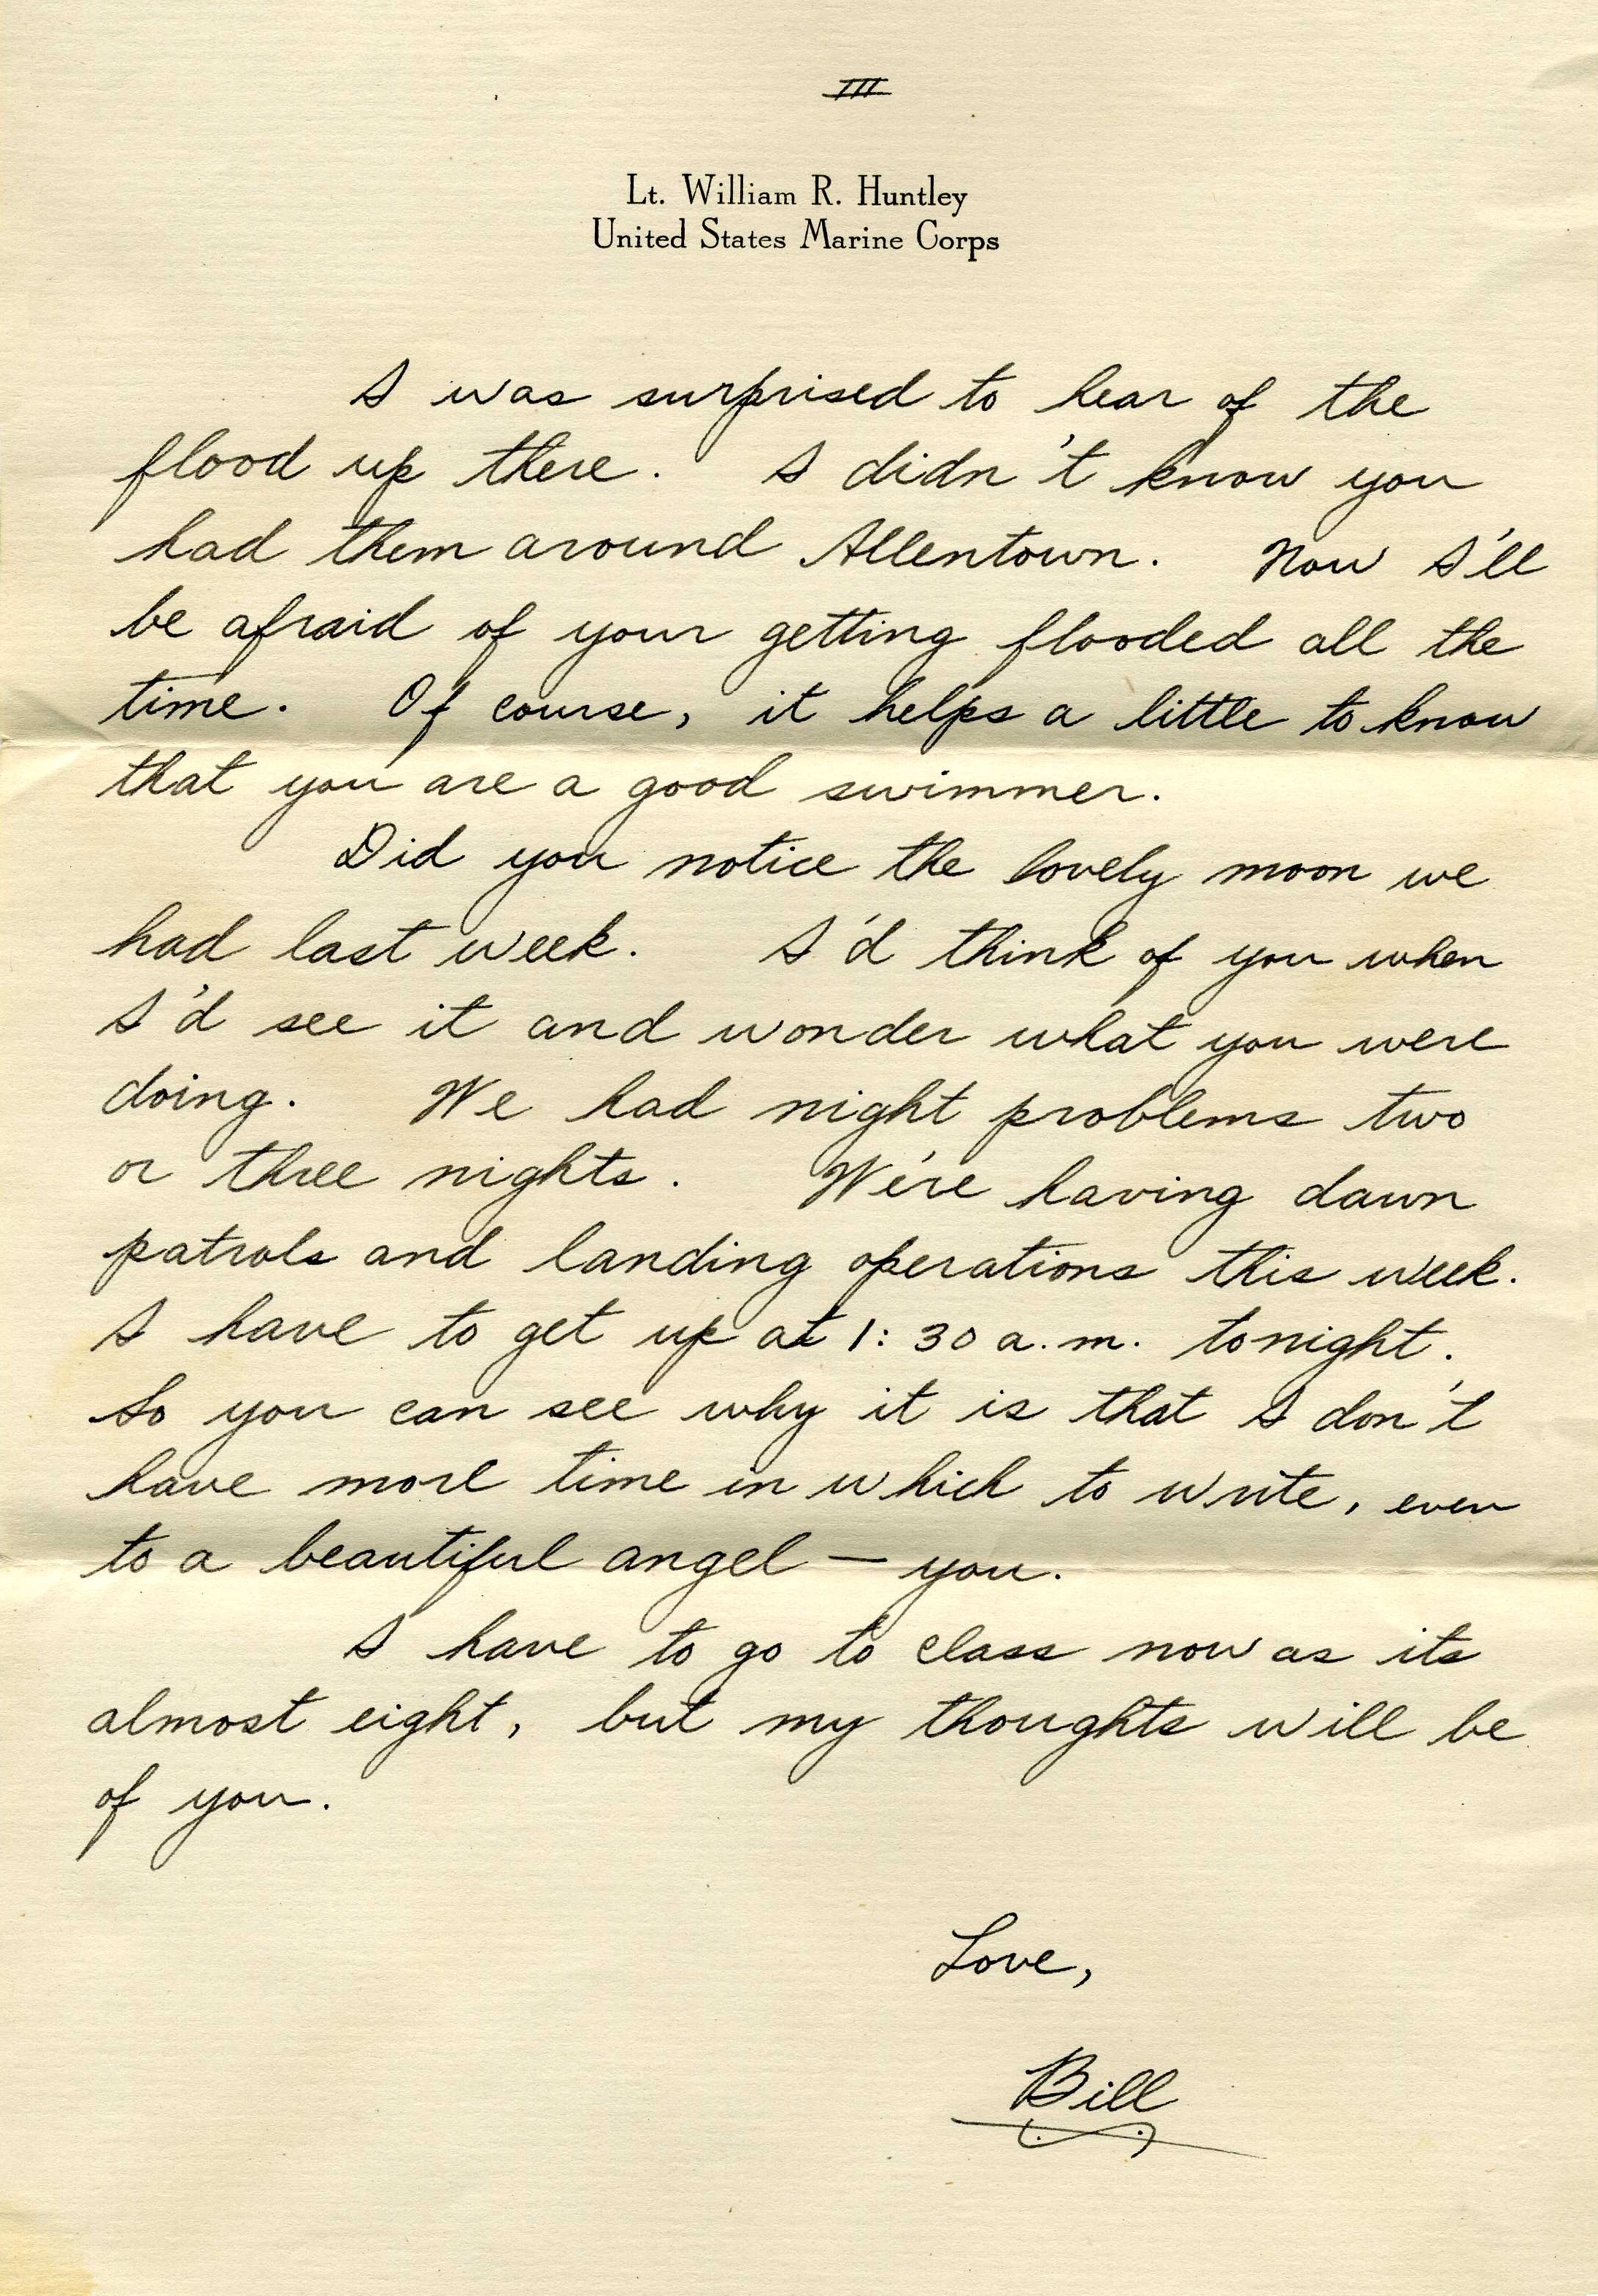 III
Lt. William R. Huntley
United States Marine Corps
I was surprised to hear of the
flood up there. I didn't know you
had them around Allentown. Now I'll
be afraid of your getting flooded all the
time. Of course, it helps a little to know
that you are a good swimmer.
Did you notice the lovely moon we
had last week. I'd think of you when
I'd see it and wonder what you were
doing. We had night problems two
or three nights. We're having dawn
patrols and landing operations this week.
I have to get up at 1:30 a.m. tonight.
So you can see why it is that I don't
have more time in which to write, even
to a beautiful angel — you.
I have to go to class now as its
almost eight, but my thoughts will be
of you.
Love,
Bill